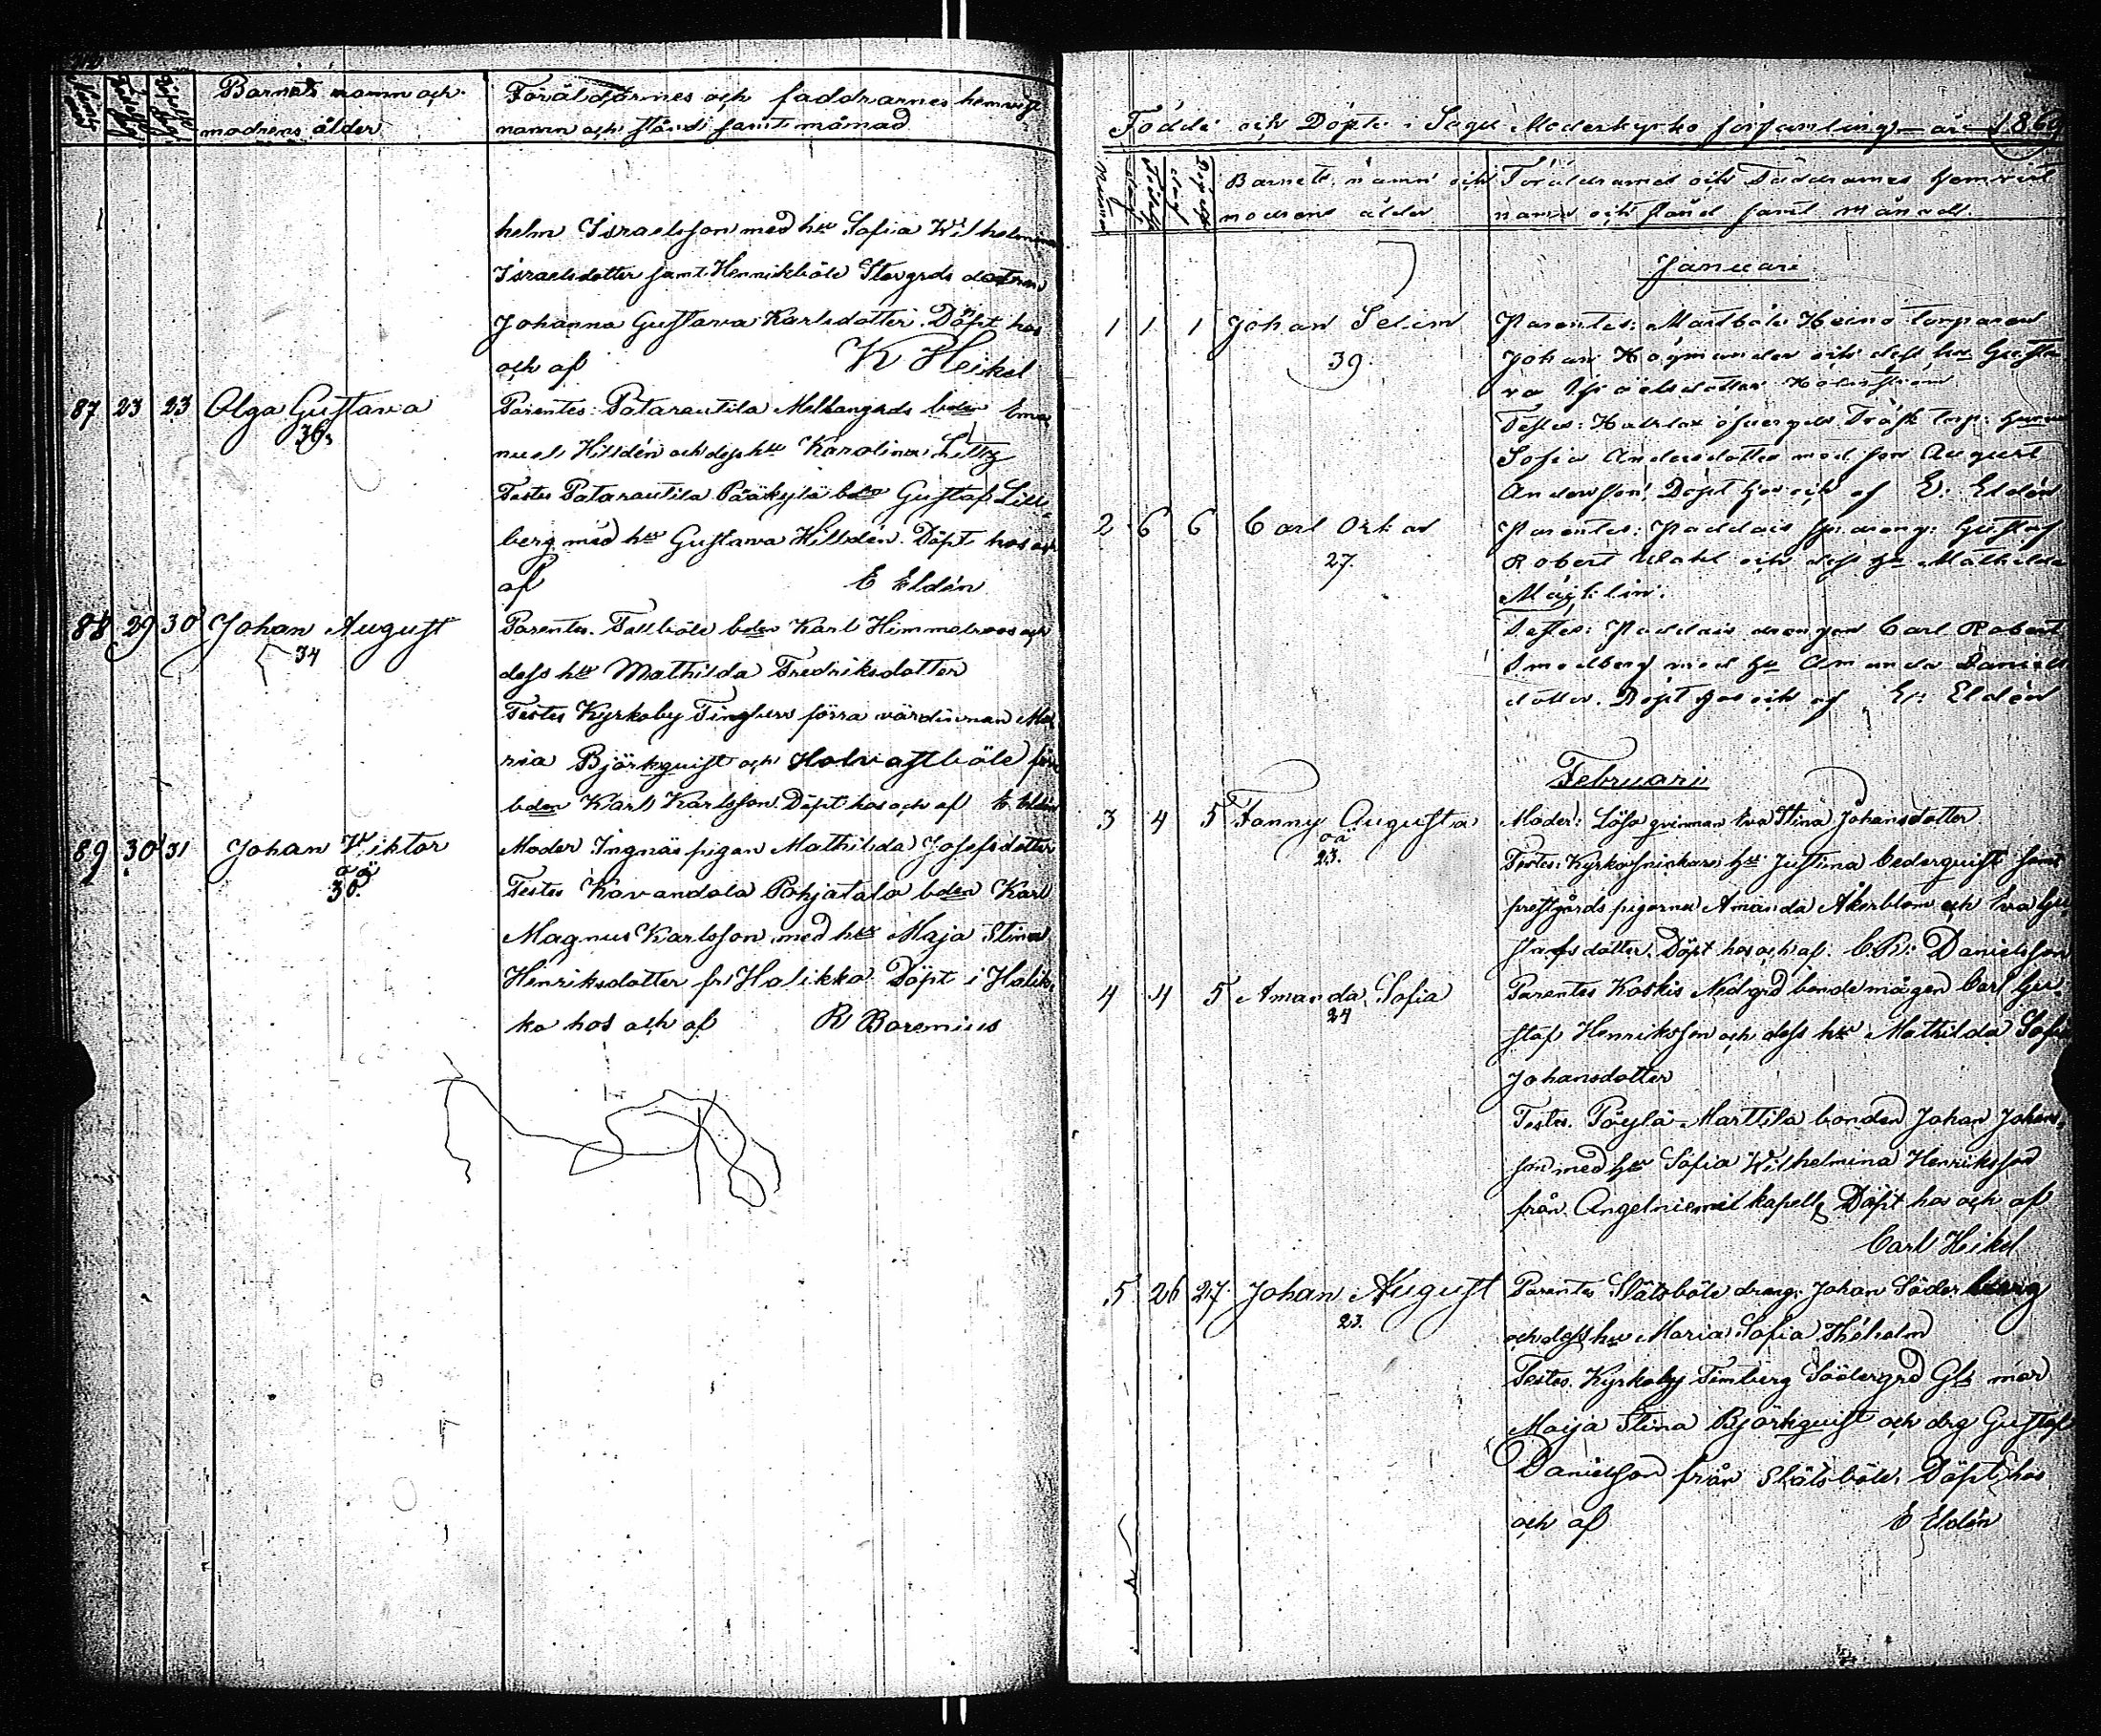 Barnets namn och
modrens ålder
Föräldrarnes och faddrarnes hemvist
namn och stånd samt månad
helm Israelsson med hu Sofia Wilhelmina
Israelsdotter samt Henriksböle Storgrds dottren
Johanna Gustava Karlsdotter. Döpt hos
och af K Heikel
87 23 23 Olga Gustava
36
Parentes: Patarautila Mellangrds bden Ema
nuel Hilldén och dess hu Karolina
Testes Patarautila Pääkylä bdn Gustaf Lill
berg med hu Gustava Hilldén. Döpt hos och
af E Eldén
88 29 30 Johan August
34
Parentes. Falkböle bden Karl Himmelroos och
dess hu Mathilda Fredriksdotter
Testes Kyrkoby förra värdinnan Ma
ria Björkquist och förre
bden Karl Karlsson. Döpt hos och af E Eldén
89 30 31 Johan Viktor
oä
36.
Moder Ingnäs pigan Mathilda Josefsdotter
Testes Kavandola Pohjatalo bden Karl
Magnus Karlsson med hu Maja Stina
Henriksdotter fr Halikko. Döpt i Halik
ko hos och af R Boremius
Födde och Döpte i Sagu Moderkyrko församling år 1869
Barnets namn och
modrens ålder
Föräldrarnes och Faddrarnes hemvist
namn och stånd samt månad.
Januari
1 1 1 Johan Selim
39.
Parentes: Martböle Heino torparen
Johan Högmander och dess hu Gusta
va Israelsdotter Holmström
Testes: Träsk torp:
Sofia Andersdotter med son August
Andersson. Döpt hos och af E: Eldén
2 6 6 Carl Oskar
27.
Parentes: Paddais Gustaf
Robert Wahl och dess hu Mathilda
Mägklin.
Testes: Paddais drängen Carl Robert
Smedberg med hu Amanda Daniels
dotter. Döpt hos och af E: Eldén
Februari
3 4 5 Fanny Augusta
oä
23.
Moder: Lösa qvinnan Eva Stina Johansdotter
Testes: Kyrkosnickare hu Justina Cederquist samt
prestgårds pigorna Amanda Åkerblom och Eva Gu
stafsdotter. Döpt hos och af C.R: Danielsson
4 4 5 Amanda Sofia
24
Parentes Koskis Nedgrd bonde mågen Carl Gu
staf Henriksson och dess hu Mathilda Sofia
Johansdotter
Testes. Pöylä Marttila bonden Johan Johans
son med hu Sofia Wilhelmina Henriksson
från Angelniemi kapell Döpt hos och af
Carl Heikel
5 26 27 Johan August
23.
Parentes Slätsböle dräng: Johan Söderberg
och dess hu Maria Sofia Théholm
Testes. Kyrkoby Timberg Södergrd Gla mor
Maija Stina Björkquist och drg Gustaf
Danielsson från Slätsböle. Döpt hos
och af E Eldén